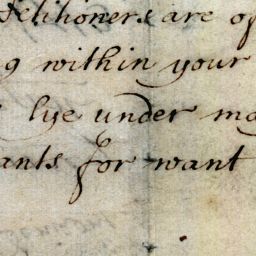 Petitioners are of
g within your
lye under ma
ants for want